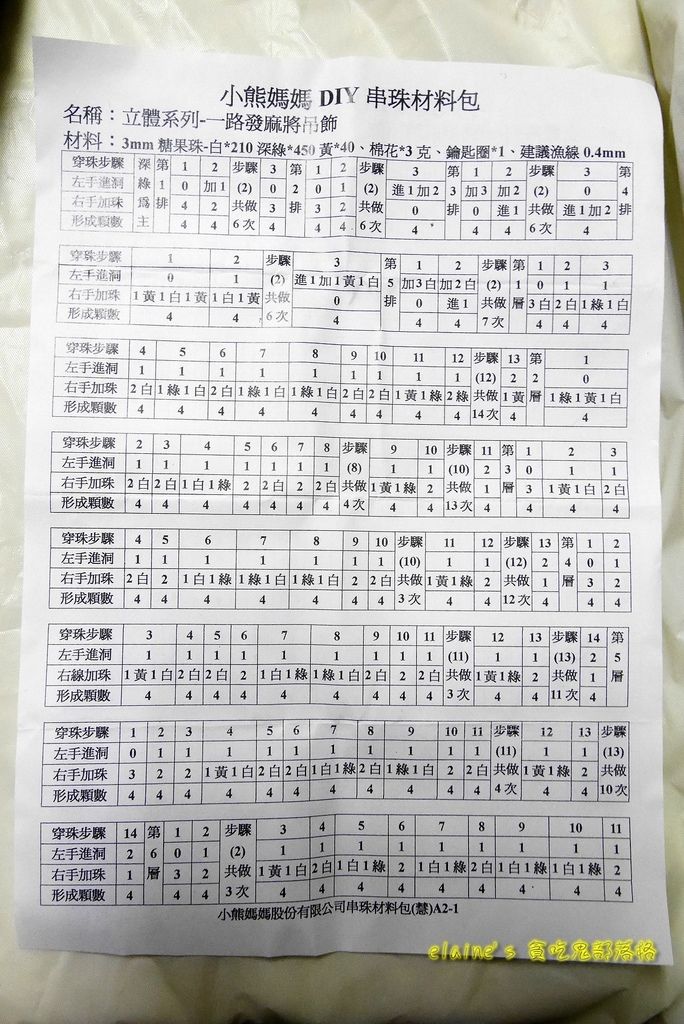 小熊媽媽 DIY 串珠材料包
名稱：立體系列-一路發麻將吊飾
材料：3mm 糖果珠-白*210 深綠*450 黃*40、棉花*3 克、鑰匙圈*1、建議漁線 0.4mm
穿珠步驟 深綠為主 第1排 1 2 步驟(2)共做6次 3 第2排 1 2 步驟(2)共做6次 3 第3排 1 2 步驟(2)共做6次 3 第4排
左手進洞 0 加1 0 0 1 進1加2 加3 加2 0
右手加珠 4 2 2 3 2 0 0 進1 進1加2
形成顆數 4 4 4 4 4 4 4 4 4
穿珠步驟 1 2 步驟(2)共做6次 3 第5排 1 2 步驟(2)共做7次 第1層 1 2 3
左手進洞 0 1 進1加1黃1白 加3白 加2白 0 1 1
右手加珠 1黃1白1黃 1白1黃 0 0 進1 3白 2白 1綠1白
形成顆數 4 4 4 4 4 4 4 4
穿珠步驟 4 5 6 7 8 9 10 11 12 步驟(12)共做14次 13 第2層 1
左手進洞 1 1 1 1 1 1 1 1 1 2 0
右手加珠 2白 1綠1白 2白 1綠1白 1綠1白 2白 2白 1黃1綠 2綠 1黃 1綠1黃1白
形成顆數 4 4 4 4 4 4 4 4 4 4 4
穿珠步驟 2 3 4 5 6 7 8 步驟(8)共做4次 9 10 步驟(10)共做13次 11 第3層 1 2 3
左手進洞 1 1 1 1 1 1 1 1 1 2 0 1 1
右手加珠 2白 2白 1白1綠 2 2白 2 2白 1黃1綠 2 1 3 1黃1白 2白
形成顆數 4 4 4 4 4 4 4 4 4 4 4 4 4
穿珠步驟 4 5 6 7 8 9 10 步驟(10)共做3次 11 12 步驟(12)共做12次 13 第4層 1 2
左手進洞 1 1 1 1 1 1 1 1 1 2 0 1
右手加珠 2白 2 1白1綠 1綠1白 1綠1白 2 2白 1黃1綠 2 1 3 2
形成顆數 4 4 4 4 4 4 4 4 4 4 4 4
穿珠步驟 3 4 5 6 7 8 9 10 11 步驟(11)共做3次 12 13 步驟(13)共做11次 14 第5層
左手進洞 1 1 1 1 1 1 1 1 1 1 1 2
右線加珠 1黃1白 2白 2白 2 1白1綠 1綠1白 2白 2 2白 1黃1綠 2 1
形成顆數 4 4 4 4 4 4 4 4 4 4 4 4
穿珠步驟 1 2 3 4 5 6 7 8 9 10 11 步驟(11)共做4次 12 13 步驟(13)共做10次
左手進洞 0 1 1 1 1 1 1 1 1 1 1 1 1
右手加珠 3 2 2 1黃1白 2白 2白 1白1綠 2白 1綠1白 2 2白 1黃1綠 2
形成顆數 4 4 4 4 4 4 4 4 4 4 4 4 4
穿珠步驟 14 第6層 1 2 步驟(2)共做3次 3 4 5 6 7 8 9 10 11
左手進洞 2 0 1 1 1 1 1 1 1 1 1 1
右手加珠 1 3 2 1黃1白 2白 1白1綠 2 1白1綠 2白 1白1綠 1白1綠 2
形成顆數 4 4 4 4 4 4 4 4 4 4 4 4
小熊媽媽股份有限公司串珠材料包(慧)A2-1
elaine's 貪吃鬼部落格